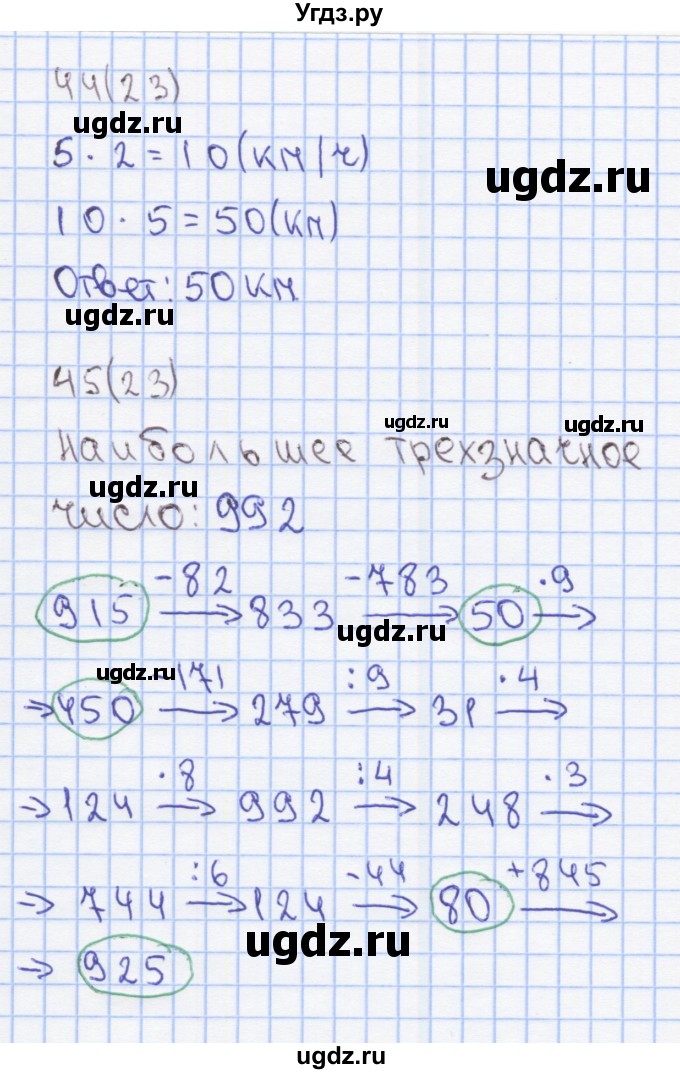 Угдз.ру
44(23)
ugdz.ru
5 · 2 = 10(км/ч)
ugdz.ru
10 · 5 = 50(км)
Ответ: 50 км
ugdz.ru
45(23)
ugdz.ru
ugdz.ru
Наибольшее трехзначное
ugdz.ru
число: 992
-82 -783 ·9
915 → 833 → 50 →
ugdz.ru
ugdz.ru
-171 :9 ·4
→ 450 → 279 → 31 →
·8 :4 ·3
→ 124 → 992 → 248 →
:6 -44 +845
→ 744 → 124 → 80 →
ugdz.ru
→ 925
ugdz.ru